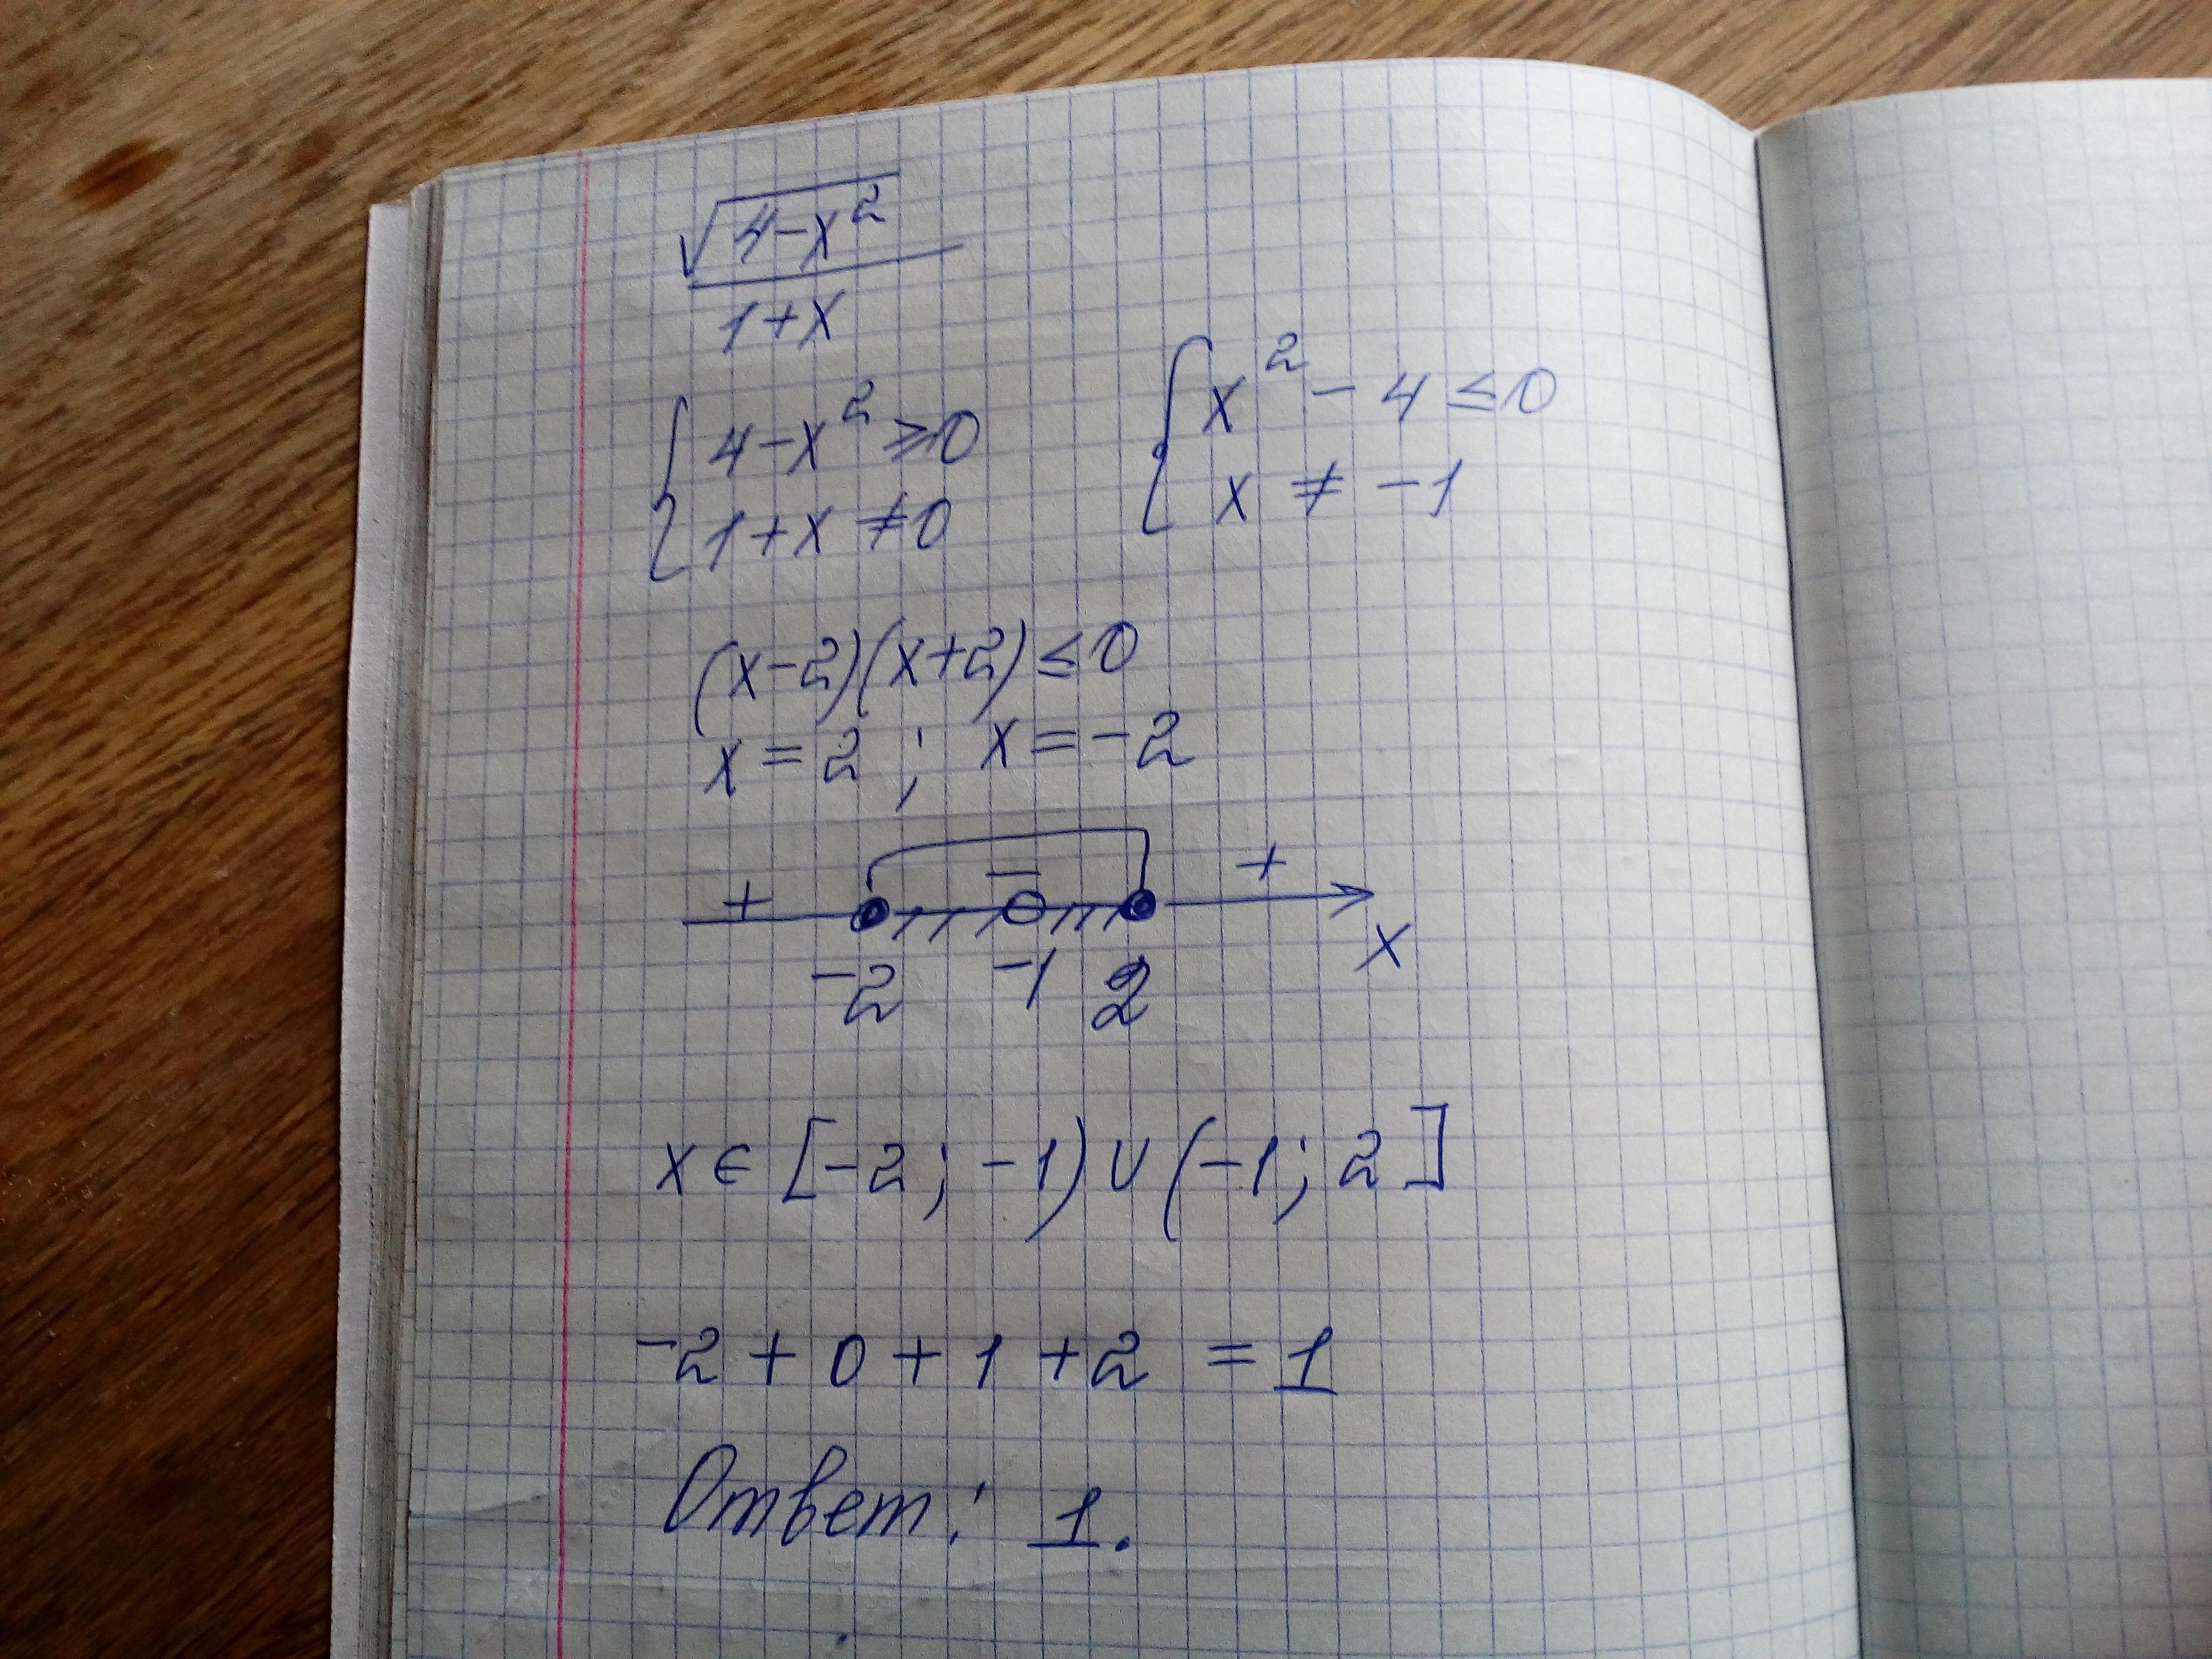 √4-x²
1+x
{ 4-x² ≥ 0
1+x ≠ 0
{ x² - 4 ≤ 0
x ≠ -1
(x-2)(x+2) ≤ 0
x = 2 ; x = -2
+ − +
-2 -1 2 x
x ∈ [-2; -1) ∪ (-1; 2]
-2 + 0 + 1 + 2 = 1
Ответ: 1.